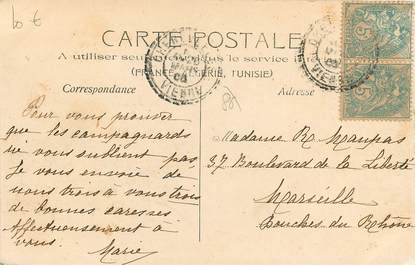 10 €
CARTE POSTALE
A utiliser seulement dans le service
(FRANCE, ALGÉRIE, TUNISIE)
Correspondance
Adresse
Pour vous prouver
que les campagnards
ne vous oublient pas
Je vous envoie de
nous trois à vous trois
de bonnes caresses
Affectueusement à
vous.
Marie
Madame R Maupas
37 Boulevard de la Liberté
Marseille
Bouches du Rhône
VIENNE
5
5